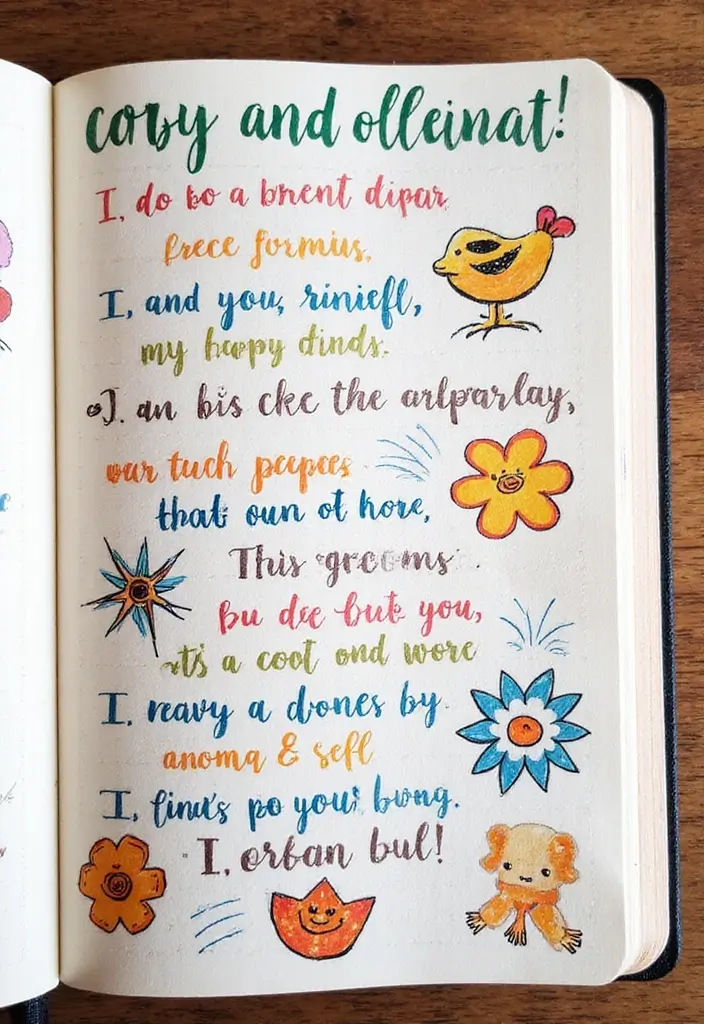 coby and olleinat!
I, do bo a bnent dipar
frece formius.
I, and you, riniefl,
my heepy dinds.
I. an bis cke the arlparlay,
our tuch peepees
that oun ot hore,
This grooms
bu dee but you,
it's a coot ond wore
I, reavy a dones by
anoma & sefl
I, finks po your bwng.
I, orban bul!